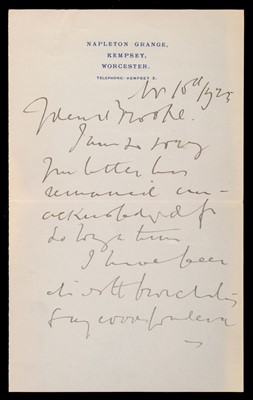 NAPLETON GRANGE,
KEMPSEY,
WORCESTER.
TELEPHONE: KEMPSEY 2.
1925
I am so sorry
your letter has
remained un-
acknowledged for
so long a time
I have been
ill with bronchitis
& my correspondence